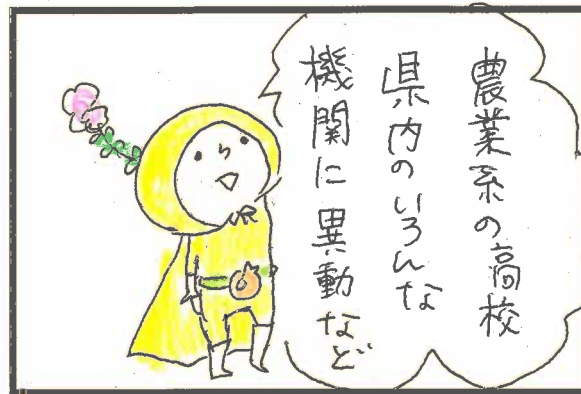 農業系の高校
県内のいろんな
機関に異動など